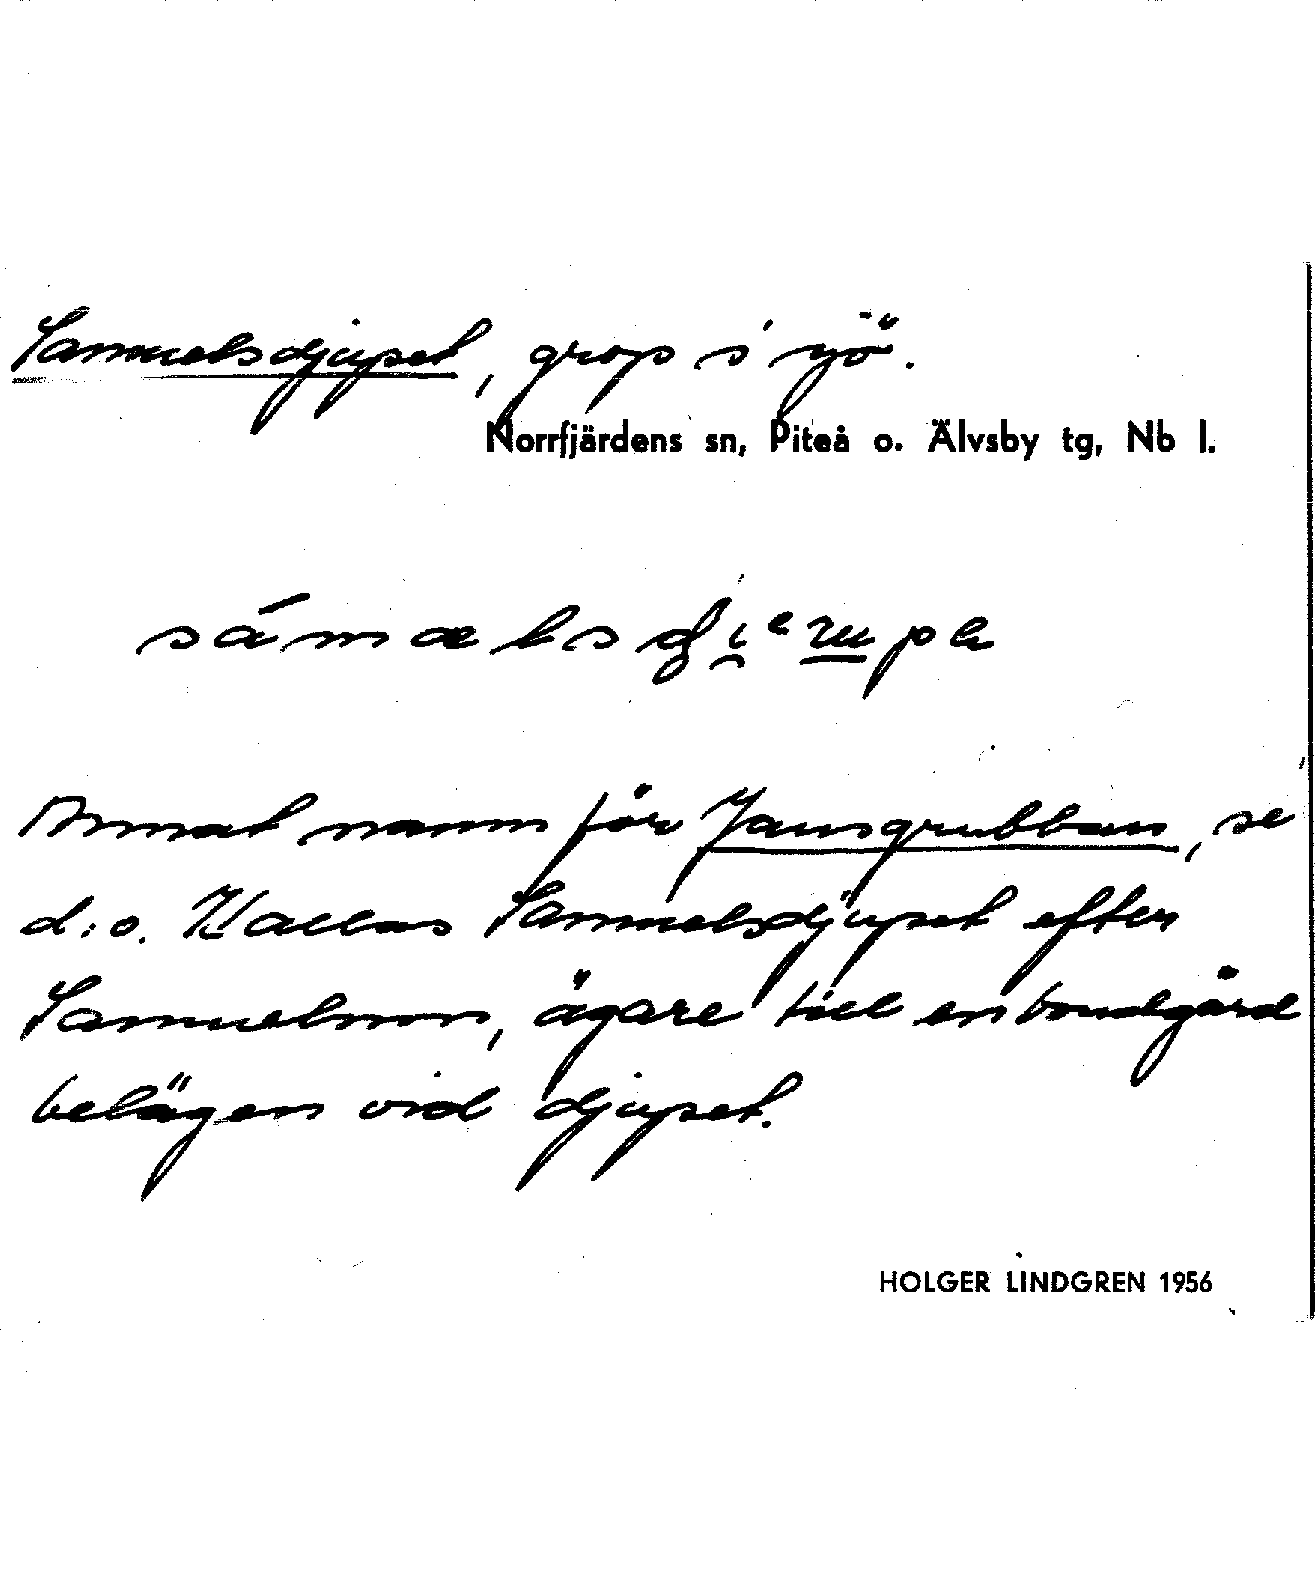 Samuelsdjupet, grop i sjö.
Norrfjärdens sn, Piteå o. Älvsby tg, Nb l.
Annat namn för Jansgrubban, se
d:o. Kallas Samuelsdjupet efter
Samuelsson, ägare till en bondgård
belägen vid djupet.
HOLGER LINDGREN 1956